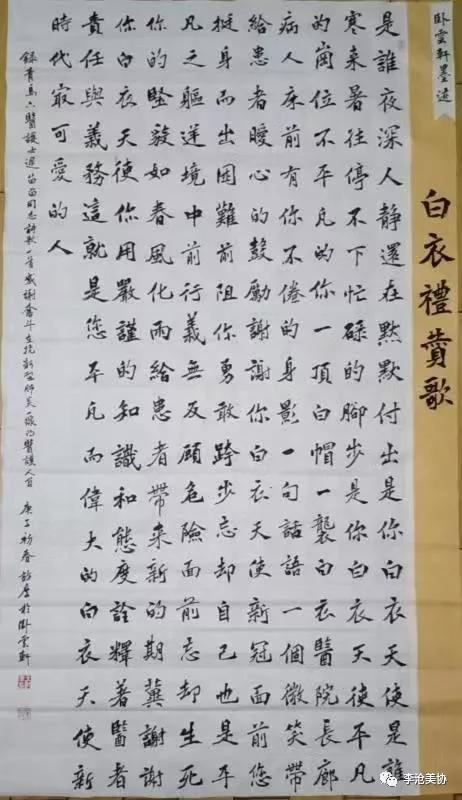 卧雲軒墨迹
白衣禮贊歌
是誰夜深人静還在默默付出是你白衣天使是誰
寒来暑往停不下忙碌的腳步是你白衣天使平凡
的崗位不平凡的你一頂白帽一襲白衣醫院長廊
病人床前有你不倦的身影一句話語一個微笑帶
給患者暖心的鼓勵謝謝你白衣天使新冠面前您
挺身而出困難前阻你勇敢跨步忘却自己也是平
凡之軀逆境中前行義無反顧危險面前忘却生死
你的堅毅如春風化雨給患者帶来新的期冀謝謝
你白衣天使你用嚴謹的知識和態度詮釋著醫者
責任與義務這就是您平凡而偉大的白衣天使新
時代最可愛的人
錄青島六醫護士遲苗苗同志詩歌一首感謝奮斗在抗新型肺炎一線的醫護人員 庚子初春 於卧雲軒
李沧美协